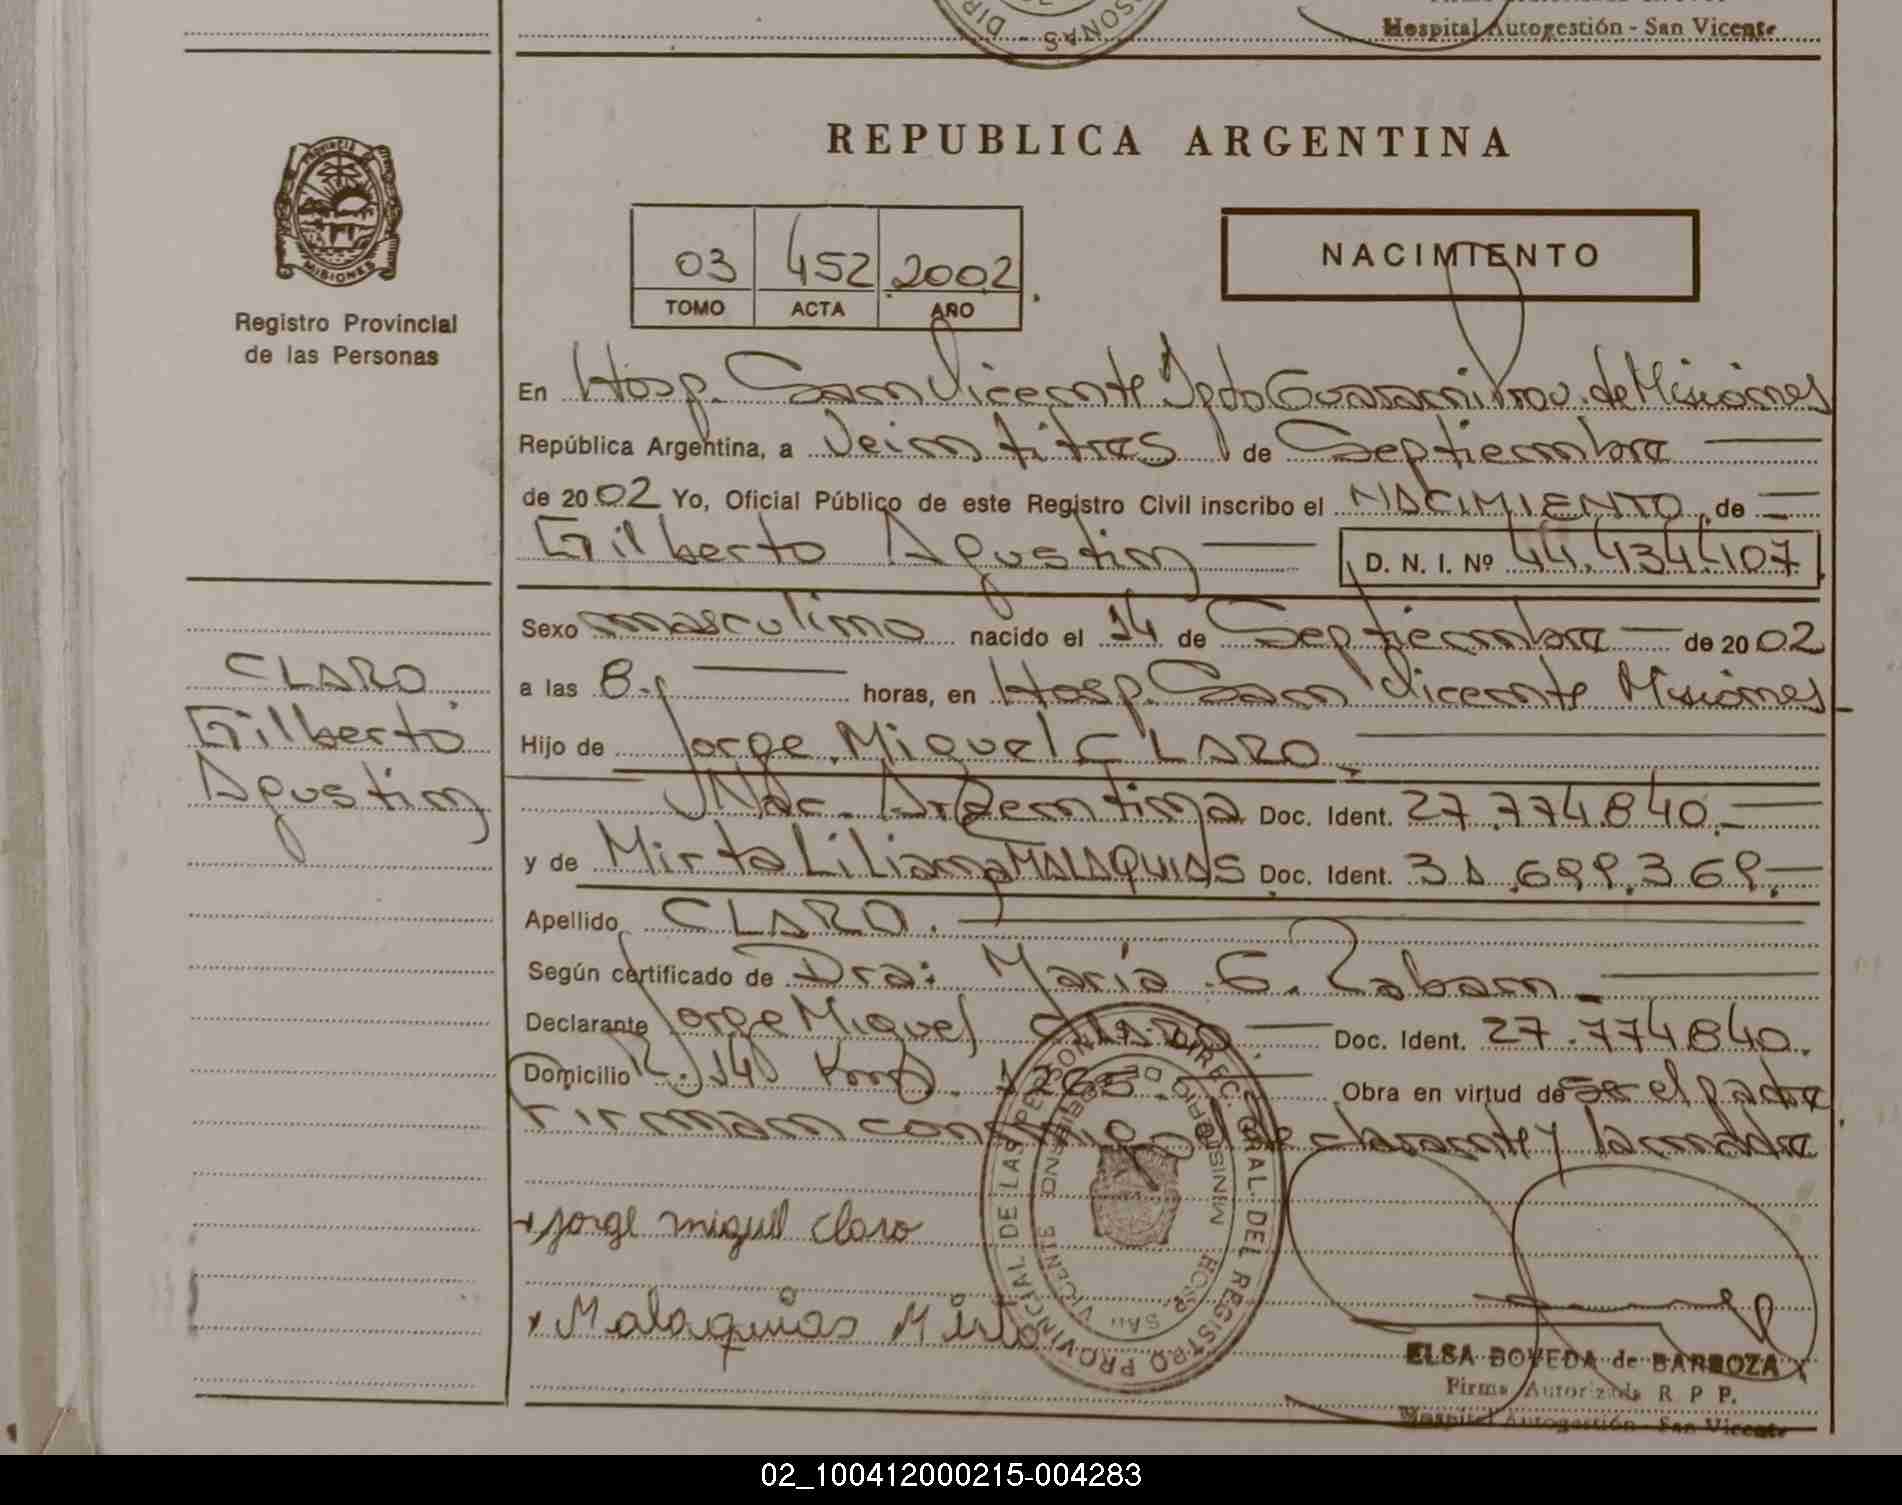 Hospital Autogestión - San Vicente
PROVINCIA DE
MISIONES
Registro Provincial
de las Personas
REPUBLICA ARGENTINA
03 452 2002
TOMO ACTA AÑO
NACIMIENTO
En Hosp. San Vicente Dpto Guaraní Prov. de Misiones
República Argentina, a Veintitres de Septiembre
de 2002 Yo, Oficial Público de este Registro Civil inscribo el NACIMIENTO de
Gilberto Agustin D. N. I. Nº 44.434.107
Sexo masculino nacido el 14 de Septiembre de 2002
a las 8. horas, en Hosp. San Vicente Misiones
Hijo de Jorge Miguel CLARO
Nac. Argentina Doc. Ident. 27.774.840.
y de Mirta Liliana MALAQUIAS Doc. Ident. 31.699.369.
Apellido CLARO.
Según certificado de Dra: María E. Zaban
Declarante Jorge Miguel CLARO. Doc. Ident. 27.774.840.
Domicilio R. 14 Km. 1265. Obra en virtud de ser el padre
Firman conmigo el declarante y la madre
CLARO
Gilberto
Agustin
Jorge miguel claro
Malaquias Mirta
DIREC. GRAL. DEL REGISTRO PROVINCIAL DE LAS PERSONAS
MINISTERIO DE GOBIERNO
HOSP. SAN VICENTE
ELSA BOVEDA de BARBOZA
Firma Autorizada R P P.
Hospital Autogestión - San Vicente
02_100412000215-004283